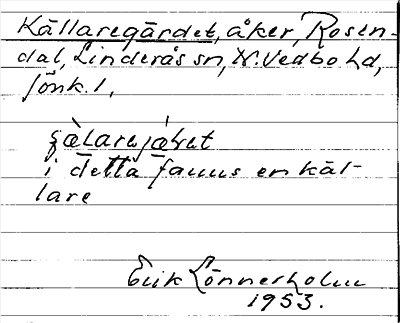 Källaregärdet, åker, Rosen-
dal, Linderås sn, N. Vedbo hd,
Jönk. l,
i detta fanns en käl-
lare
Erik Lönnerholm
1953.